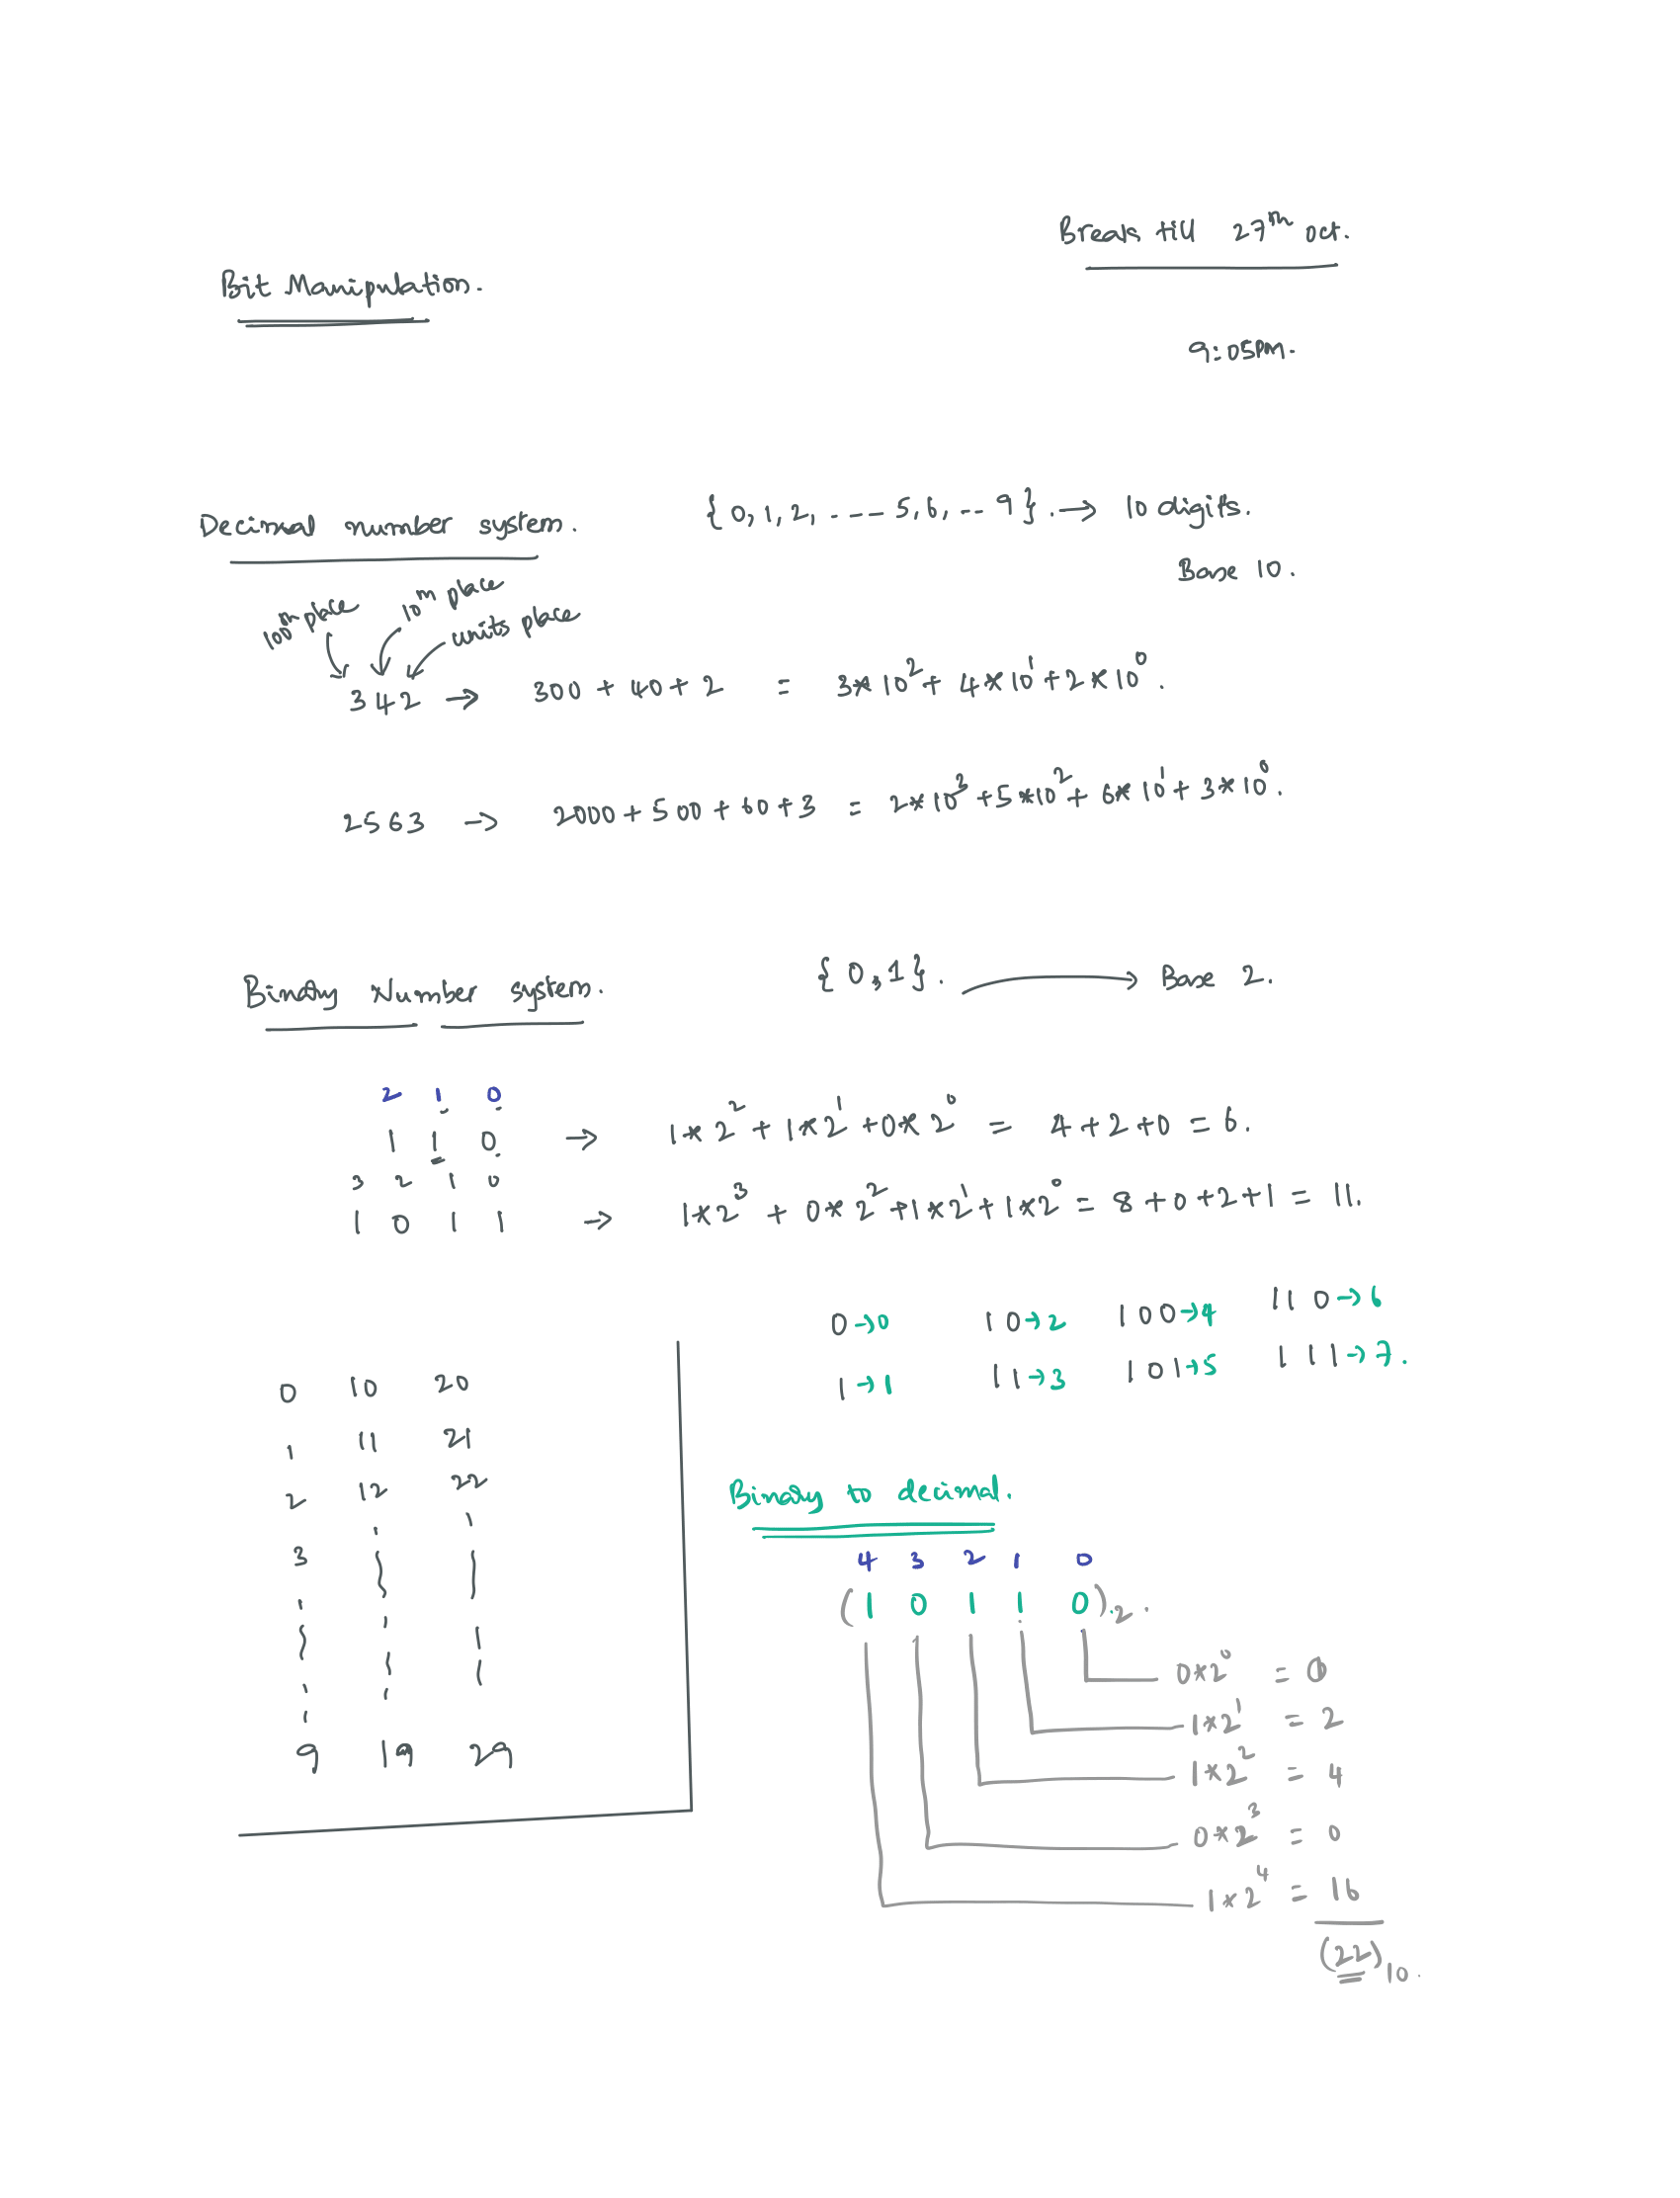 Break till 27th oct.
Bit Manipulation.
9:05PM.
Decimal number system. {0,1,2, ---- 5,6, -- 9}. → 10 digits.
Base 10.
100th place 10th place units place
342 → 300 + 40 + 2 = 3*10^2 + 4*10^1 + 2*10^0.
2563 → 2000 + 500 + 60 + 3 = 2*10^3 + 5*10^2 + 6*10^1 + 3*10^0.
Binary Number system. {0,1}. → Base 2.
2 1 0
1 1 0 → 1*2^2 + 1*2^1 + 0*2^0 = 4+2+0 = 6.
3 2 1 0
1 0 1 1 → 1*2^3 + 0*2^2 + 1*2^1 + 1*2^0 = 8+0+2+1 = 11.
0→0 10→2 100→4 110→6
1→1 11→3 101→5 111→7.
0 10 20
1 11 21
2 12 22
3
9 19 29
Binary to decimal.
4 3 2 1 0
(1 0 1 1 0)2.
0*2^0 = 0
1*2^1 = 2
1*2^2 = 4
0*2^3 = 0
1*2^4 = 16
(22)10.